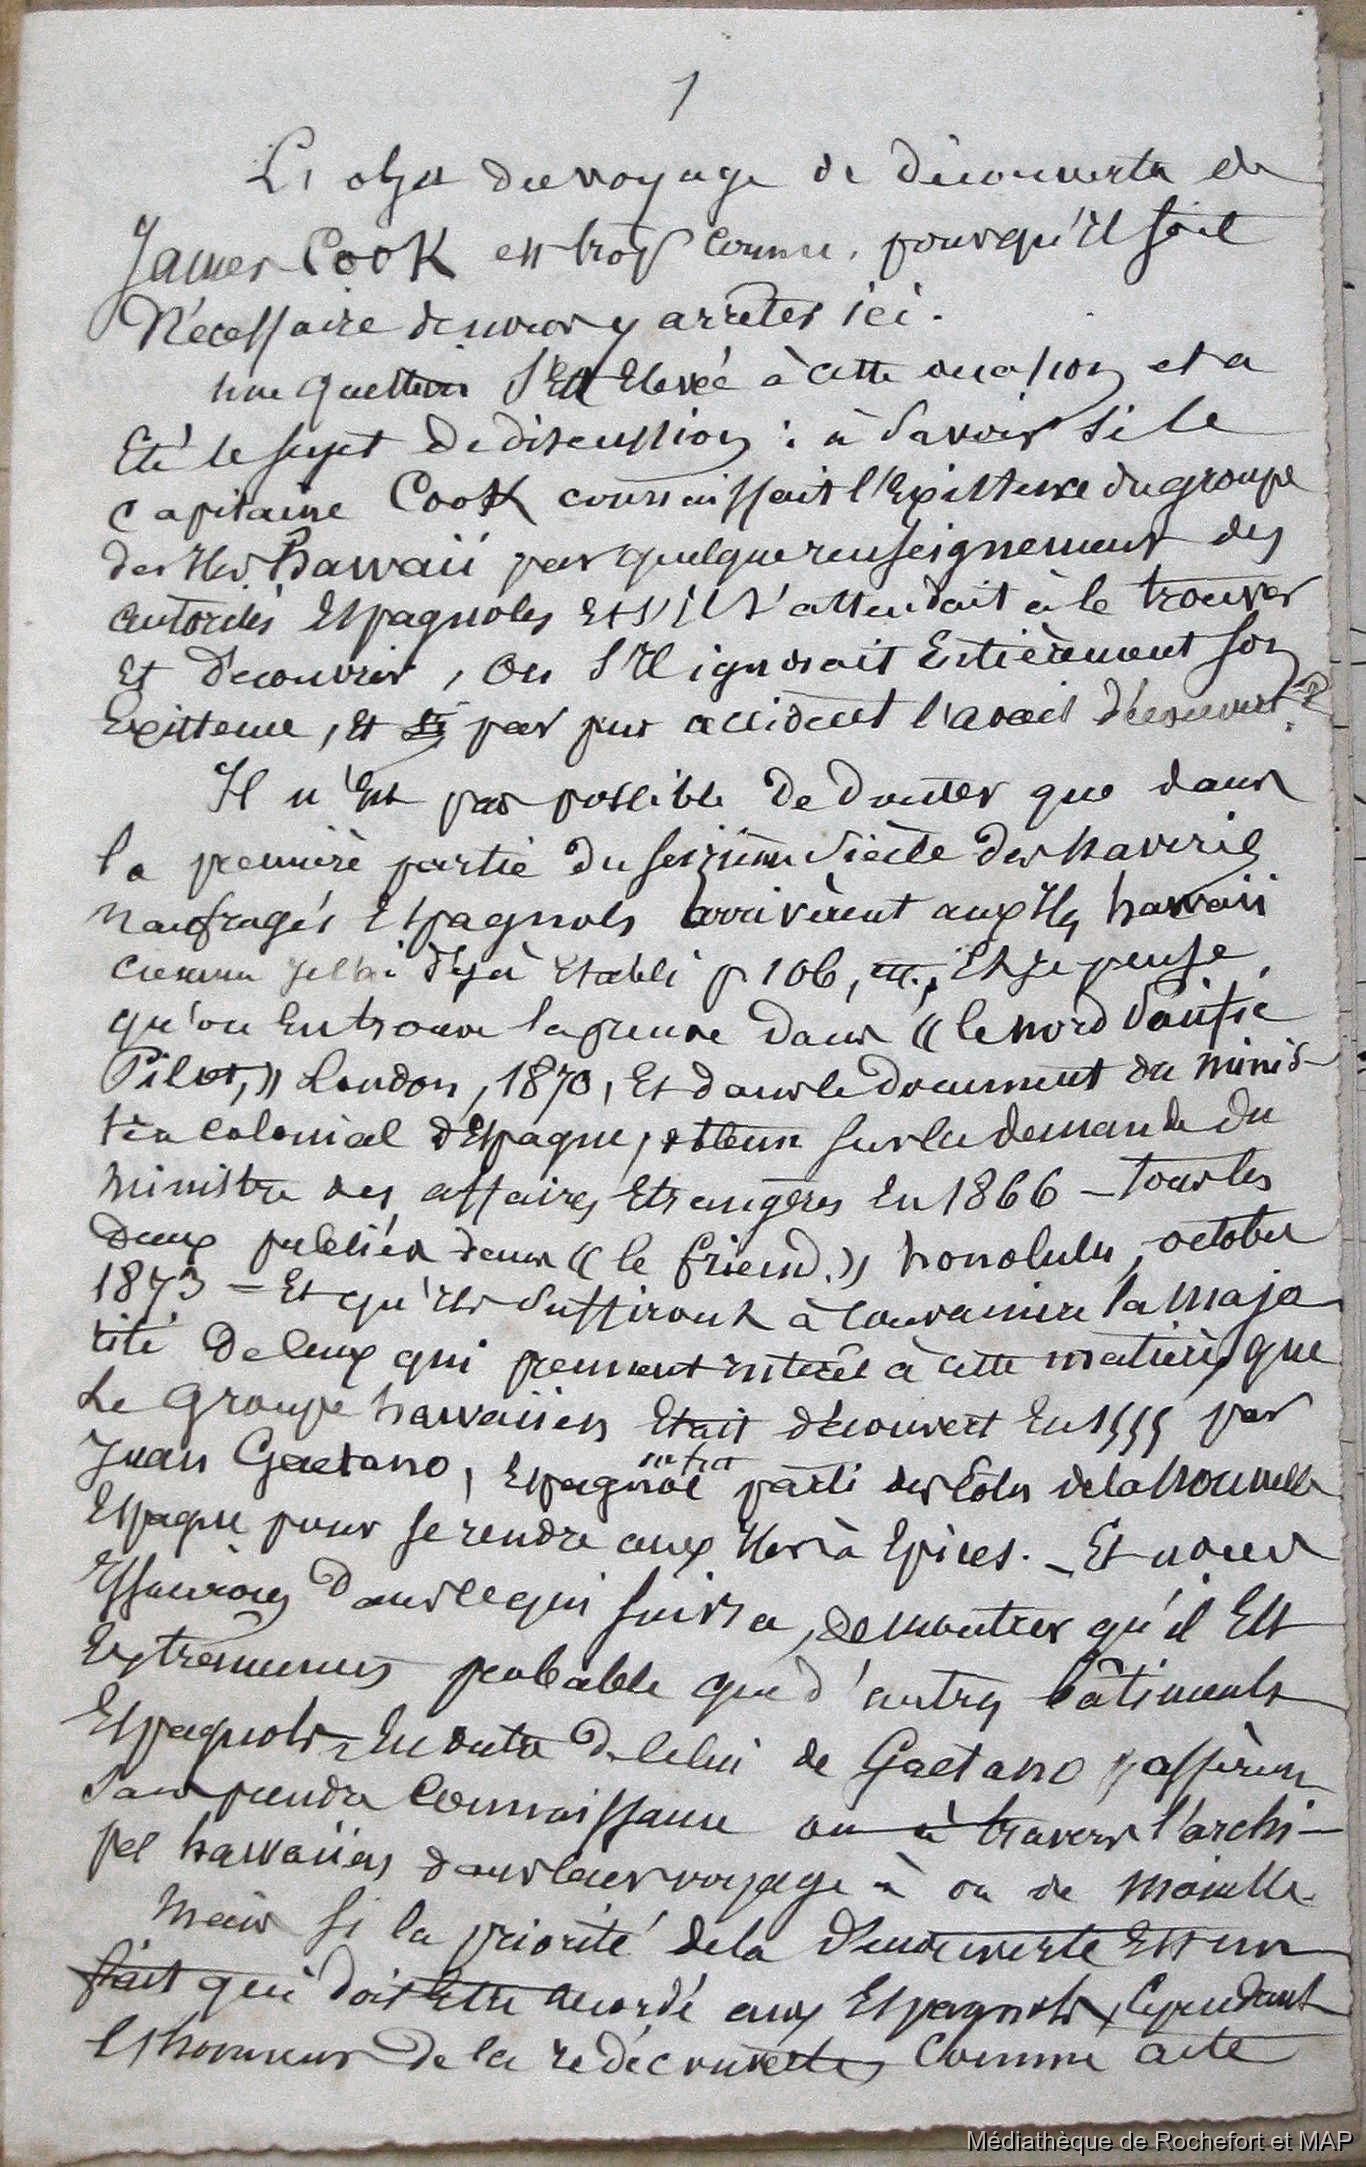 1
L'objet du voyage de découverte de
James Cook est trop connu, pour qu'il soit
Nécessaire de nous y arrêter ici.
une question s'est Elevée à cette occasion et a
Eté le sujet de discussion : à savoir si le
Capitaine Cook connaissait l'Existence du groupe
des Iles hawaii par quelque renseignement des
autorités Espagnoles et s'il s'attendait à le trouver
Et découvrir, ou s'Il ignorait Entièrement son
Existence, et par pur accident l'avait découvert?
Il n'Est pas possible de douter que dans
la première partie du seizième Siècle des navires
naufragés Espagnols arrivèrent aux Iles hawaii
comme je l'ai déjà établi p 106, Et je pense
qu'on En trouve la preuve dans « le nord Pacific
Pilot, » London, 1870, Et dans le document du minis-
tère colonial d'Espagne, obtenu sur la demande du
ministre des affaires Etrangères En 1866 – tous les
deux publiés dans « le friend. » honolulu, october
1873 = Et qu'ils suffiront à convaincre la majo
rité de ceux qui prennent intérêt à cette matière, que
Le Groupe hawaiien Etait découvert En 1555 par
Juan Gaetano, Espagnol parti des Côtes de la Nouvelle
Espagne pour se rendre aux Iles à Epices. – Et nous
Essaierons dans ce qui suivra, de montrer qu'il Est
Extrêmement probable que d'autres bâtiments
Espagnols En outre de celui de Gaetano passèrent
sans prendre Connaissance ou à travers l'archi-
pel hawaiien dans leur voyage à ou de Manille.
Mais si la priorité de la découverte Est un
fait qui doit Etre accordé aux Espagnols, Cependant
l'honneur de la redécouverte, Comme acte
Médiathèque de Rochefort et MAP